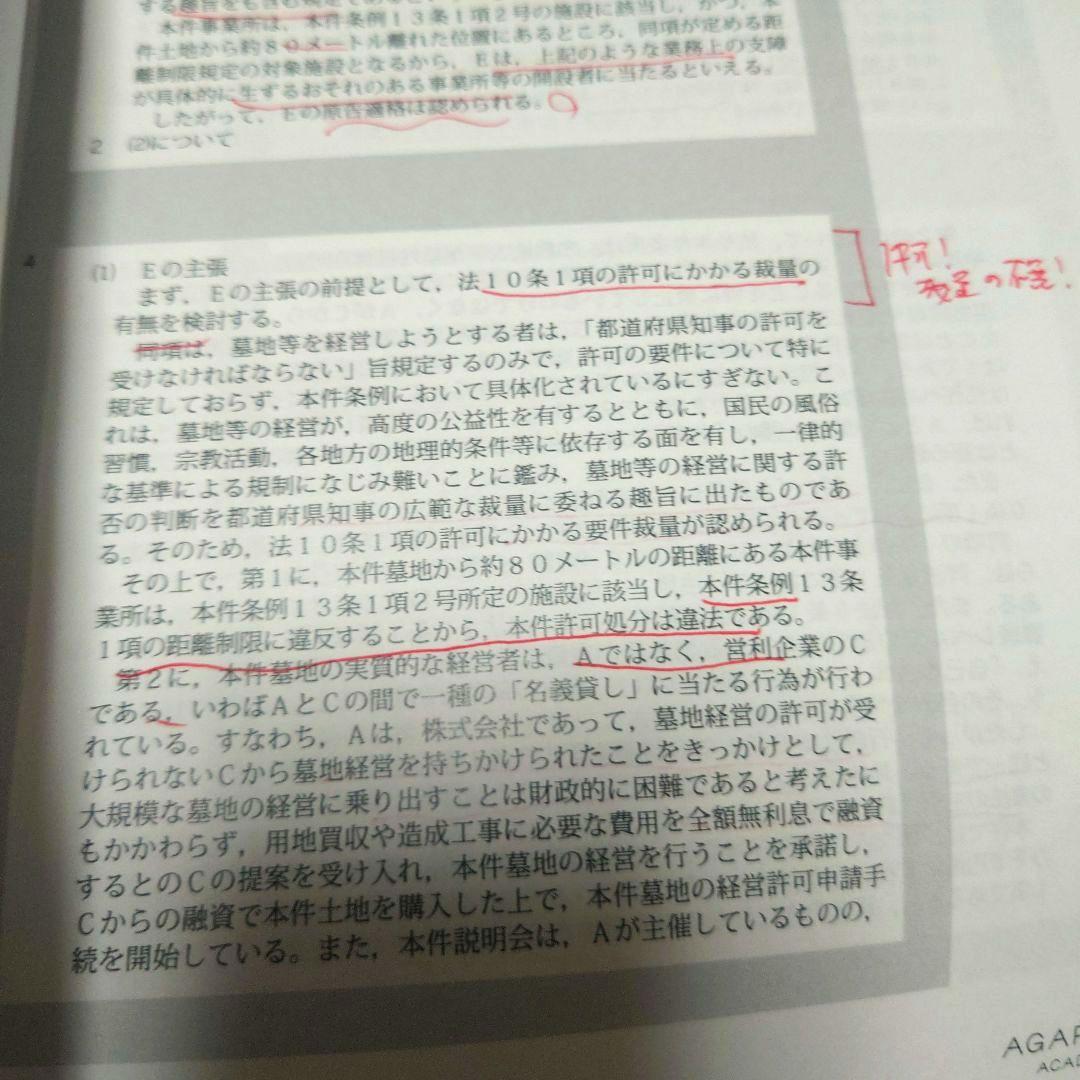 する趣旨をも含む規定である
本件事業所は，本件条例１３条１項２号の施設に該当し，かつ，本
件土地から約８０メートル離れた位置にあるところ，同項が定める距
離制限規定の対象施設となるから，Ｅは，上記のような業務上の支障
が具体的に生ずるおそれのある事業所等の開設者に当たるといえる。
したがって，Ｅの原告適格は認められる。
2 (2)について
(1) Ｅの主張
まず，Ｅの主張の前提として，法１０条１項の許可にかかる裁量の
有無を検討する。
同項は，墓地等を経営しようとする者は，「都道府県知事の許可を
受けなければならない」旨規定するのみで，許可の要件について特に
規定しておらず，本件条例において具体化されているにすぎない。こ
れは，墓地等の経営が，高度の公益性を有するとともに，国民の風俗
習慣，宗教活動，各地方の地理的条件等に依存する面を有し，一律的
な基準による規制になじみ難いことに鑑み，墓地等の経営に関する許
否の判断を都道府県知事の広範な裁量に委ねる趣旨に出たものであ
る。そのため，法１０条１項の許可にかかる要件裁量が認められる。
その上で，第１に，本件墓地から約８０メートルの距離にある本件事
業所は，本件条例１３条１項２号所定の施設に該当し，本件条例１３条
１項の距離制限に違反することから，本件許可処分は違法である。
第２に，本件墓地の実質的な経営者は，Ａではなく，営利企業のＣ
である。いわばＡとＣの間で一種の「名義貸し」に当たる行為が行わ
れている。すなわち，Ａは，株式会社であって，墓地経営の許可が受
けられないＣから墓地経営を持ちかけられたことをきっかけとして，
大規模な墓地の経営に乗り出すことは財政的に困難であると考えたに
もかかわらず，用地買収や造成工事に必要な費用を全額無利息で融資
するとのＣの提案を受け入れ，本件墓地の経営を行うことを承諾し，
Ｃからの融資で本件土地を購入した上で，本件墓地の経営許可申請手
続を開始している。また，本件説明会は，Ａが主催しているものの，
4
ACAD